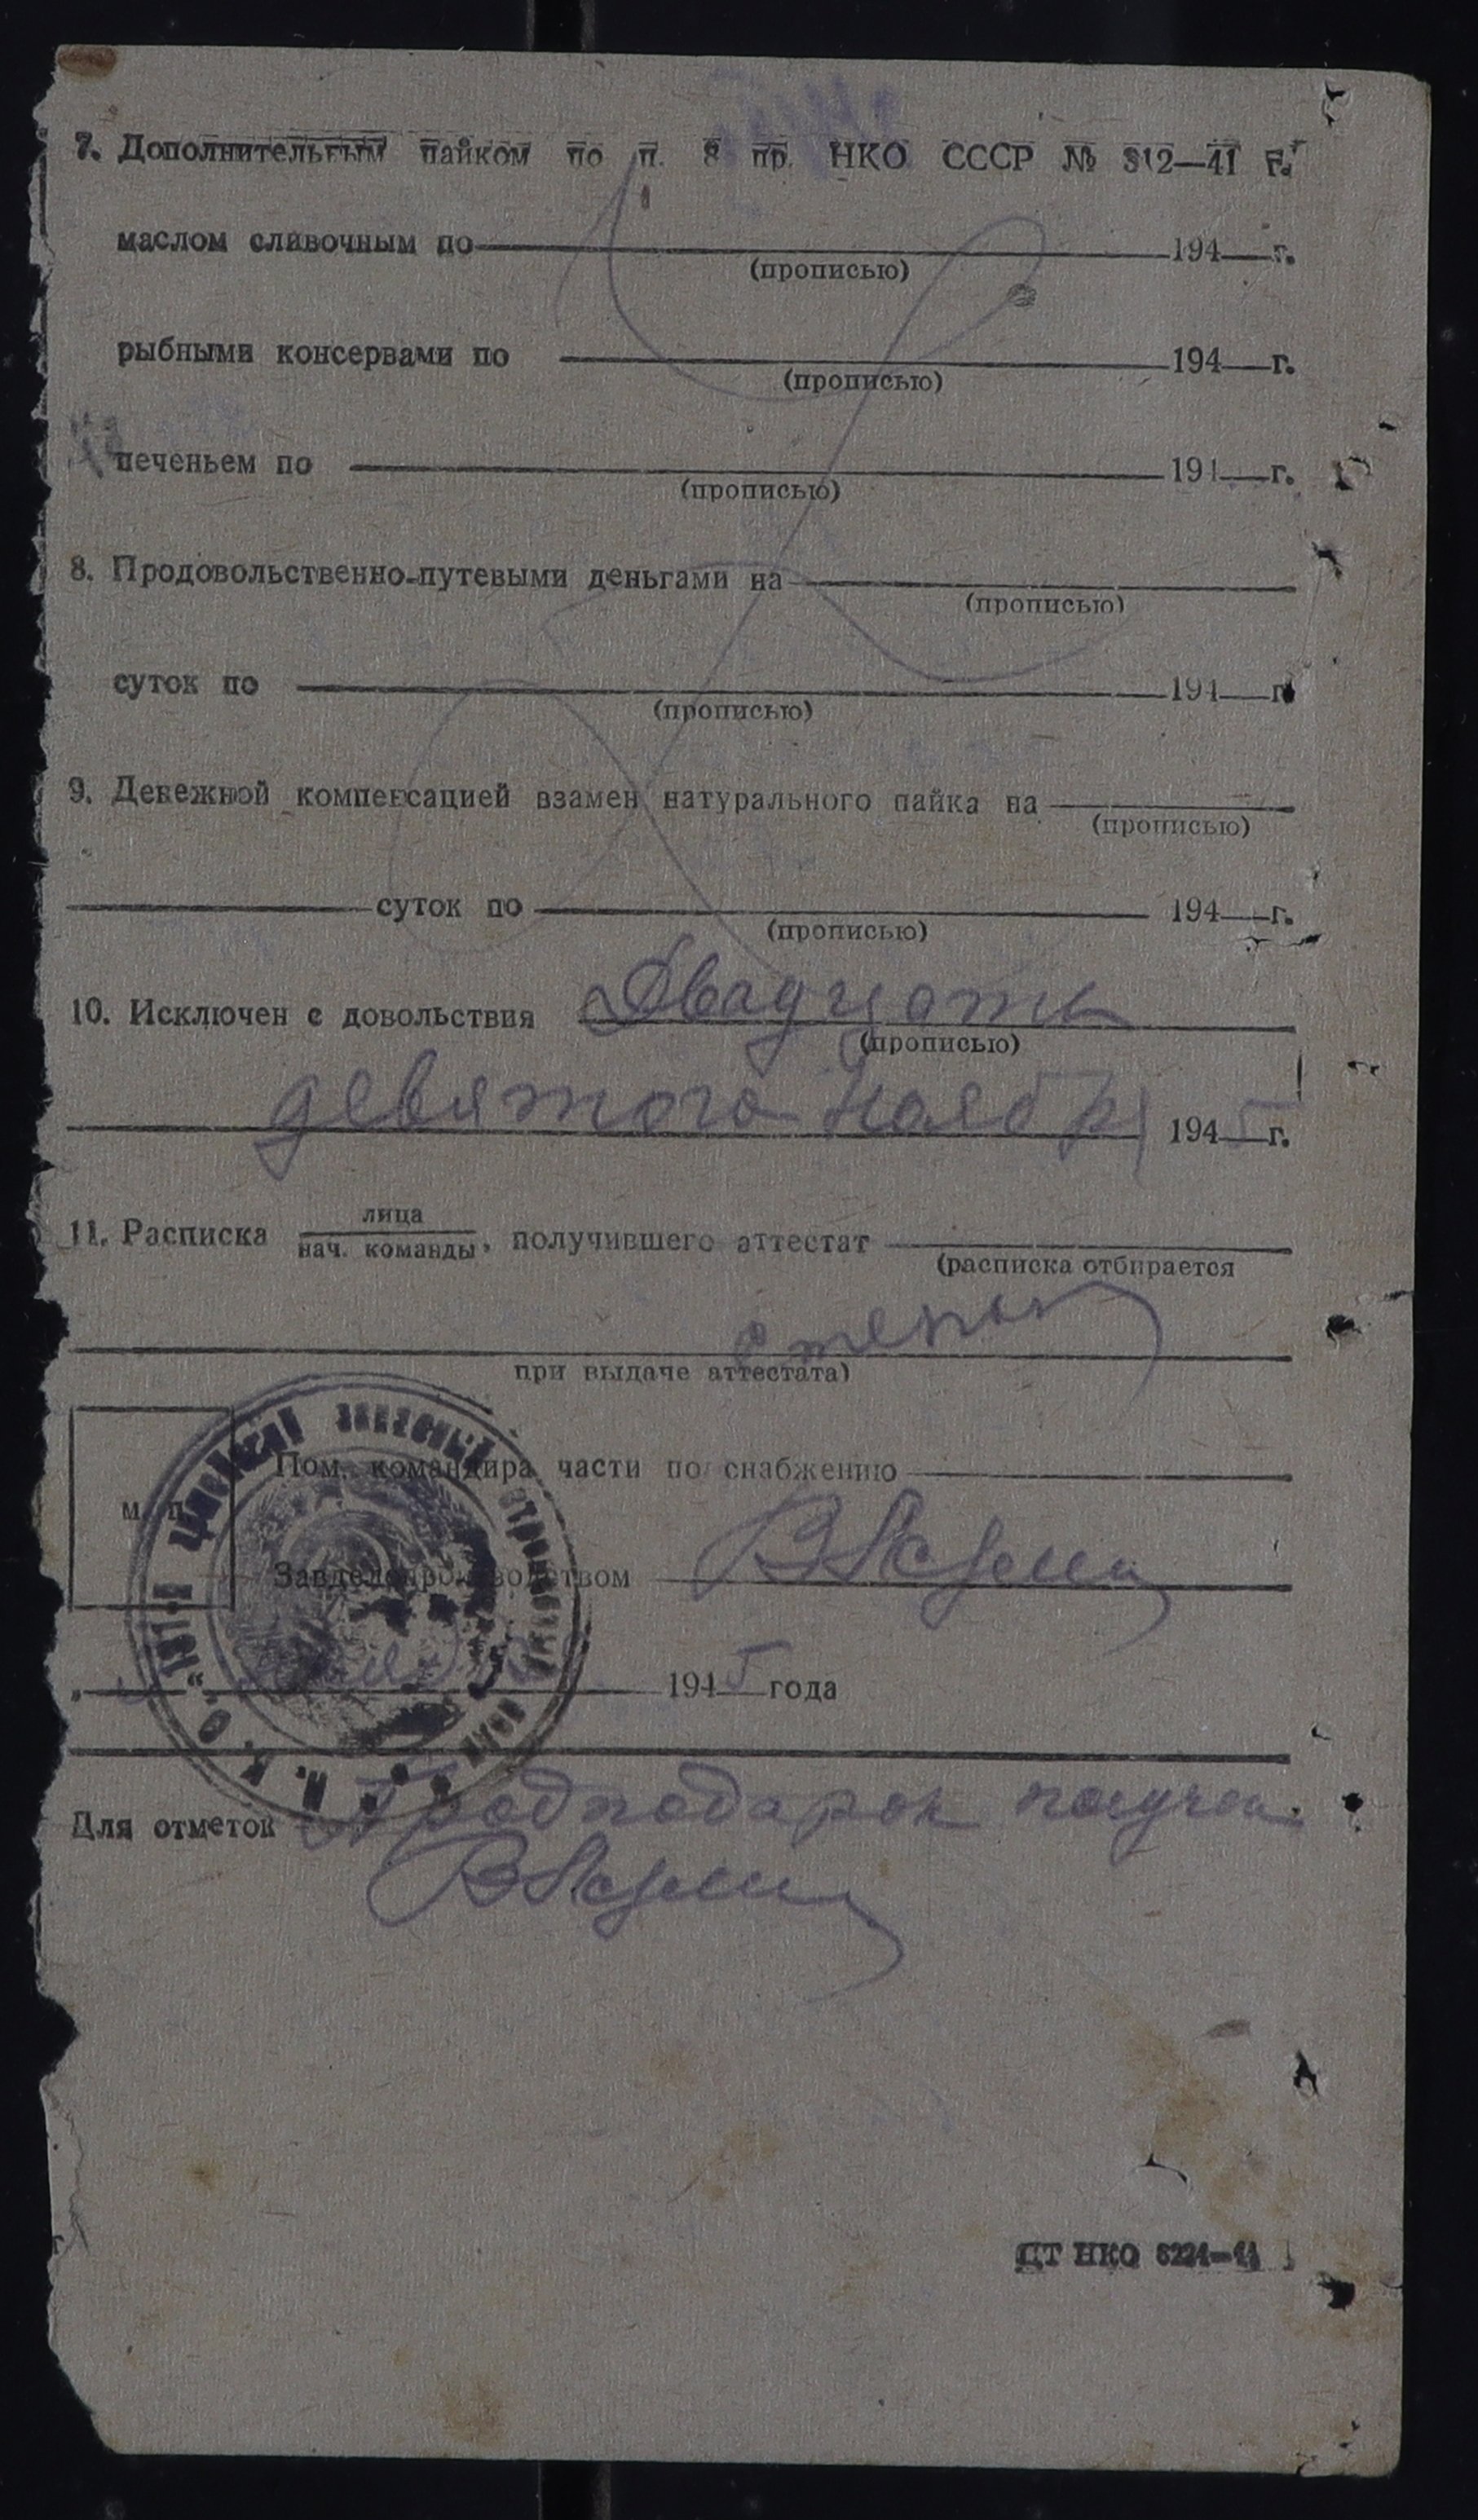 7. Дополнительным пайком по п. 8 пр. НКО СССР № 312—41 г.
маслом сливочным по 194 г.
(прописью)
рыбными консервами по 194 г.
(прописью)
печеньем по 194 г.
(прописью)
8. Продовольственно-путевыми деньгами на
(прописью)
суток по 194 г.
(прописью)
9. Денежной компенсацией взамен натурального пайка на
(прописью)
суток по 194 г.
(прописью)
10. Исключен с довольствия Двадцать
(прописью)
девятого Ноября 1945 г.
11. Расписка лица
нач. команды, получившего аттестат
(расписка отбирается
при выдаче аттестата)
Пом. командира части по снабжению
м. п.
Завделопроизводством
„ “ 1945 года
Для отметок Продподарок получен.
ЦТ НКО 8221—44